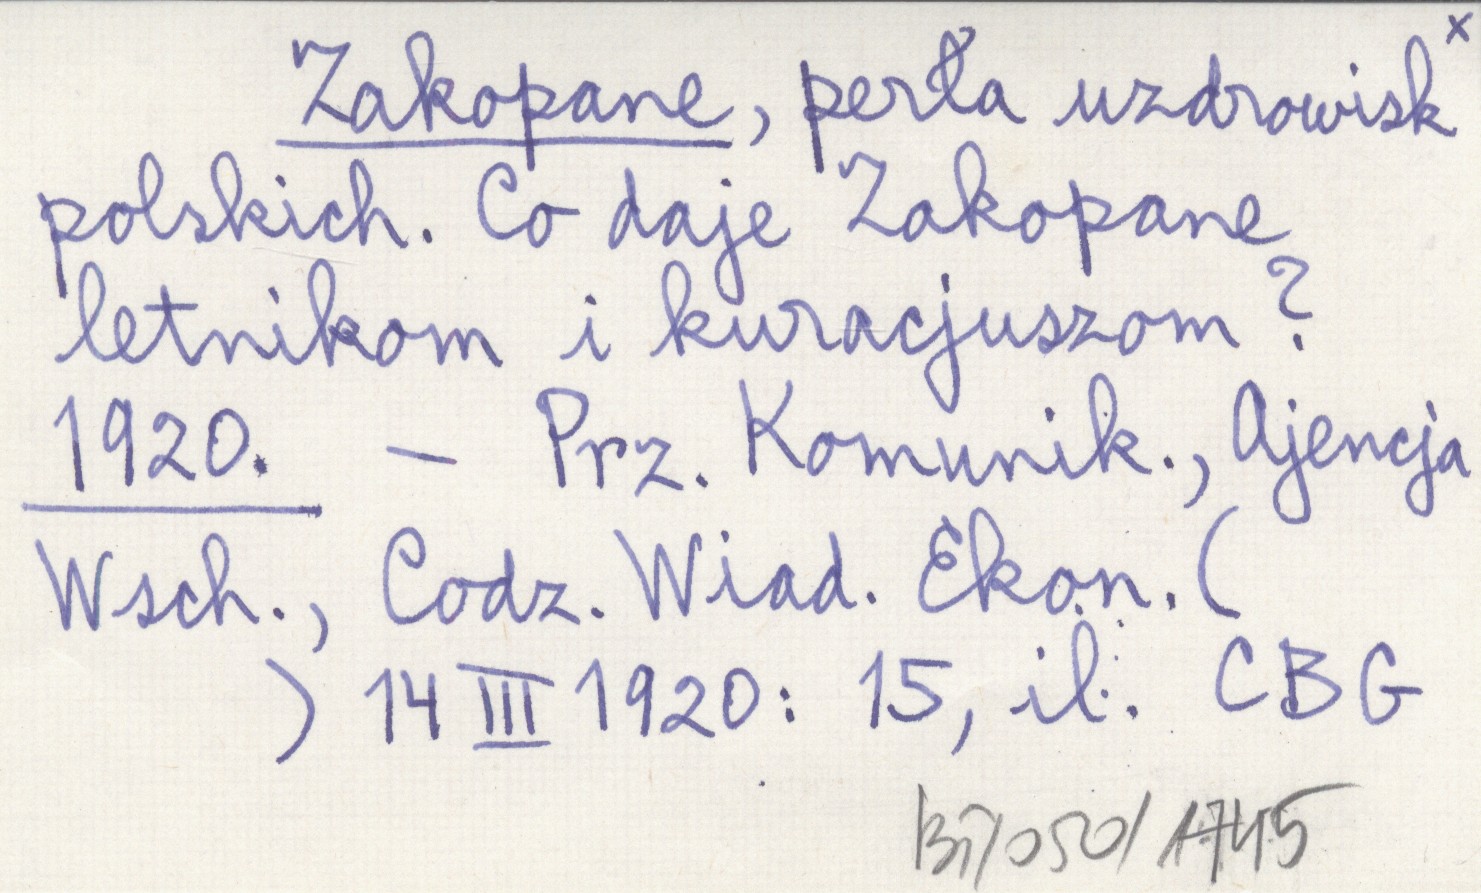 x
Zakopane, perła uzdrowisk
polskich. Co daje Zakopane
letnikom i kuracjuszom?
1920. – Prz. Komunik., Ajencja
Wsch., Codz. Wiad. Ekon. (
) 14 III 1920: 15, il. CBG
/050/1745